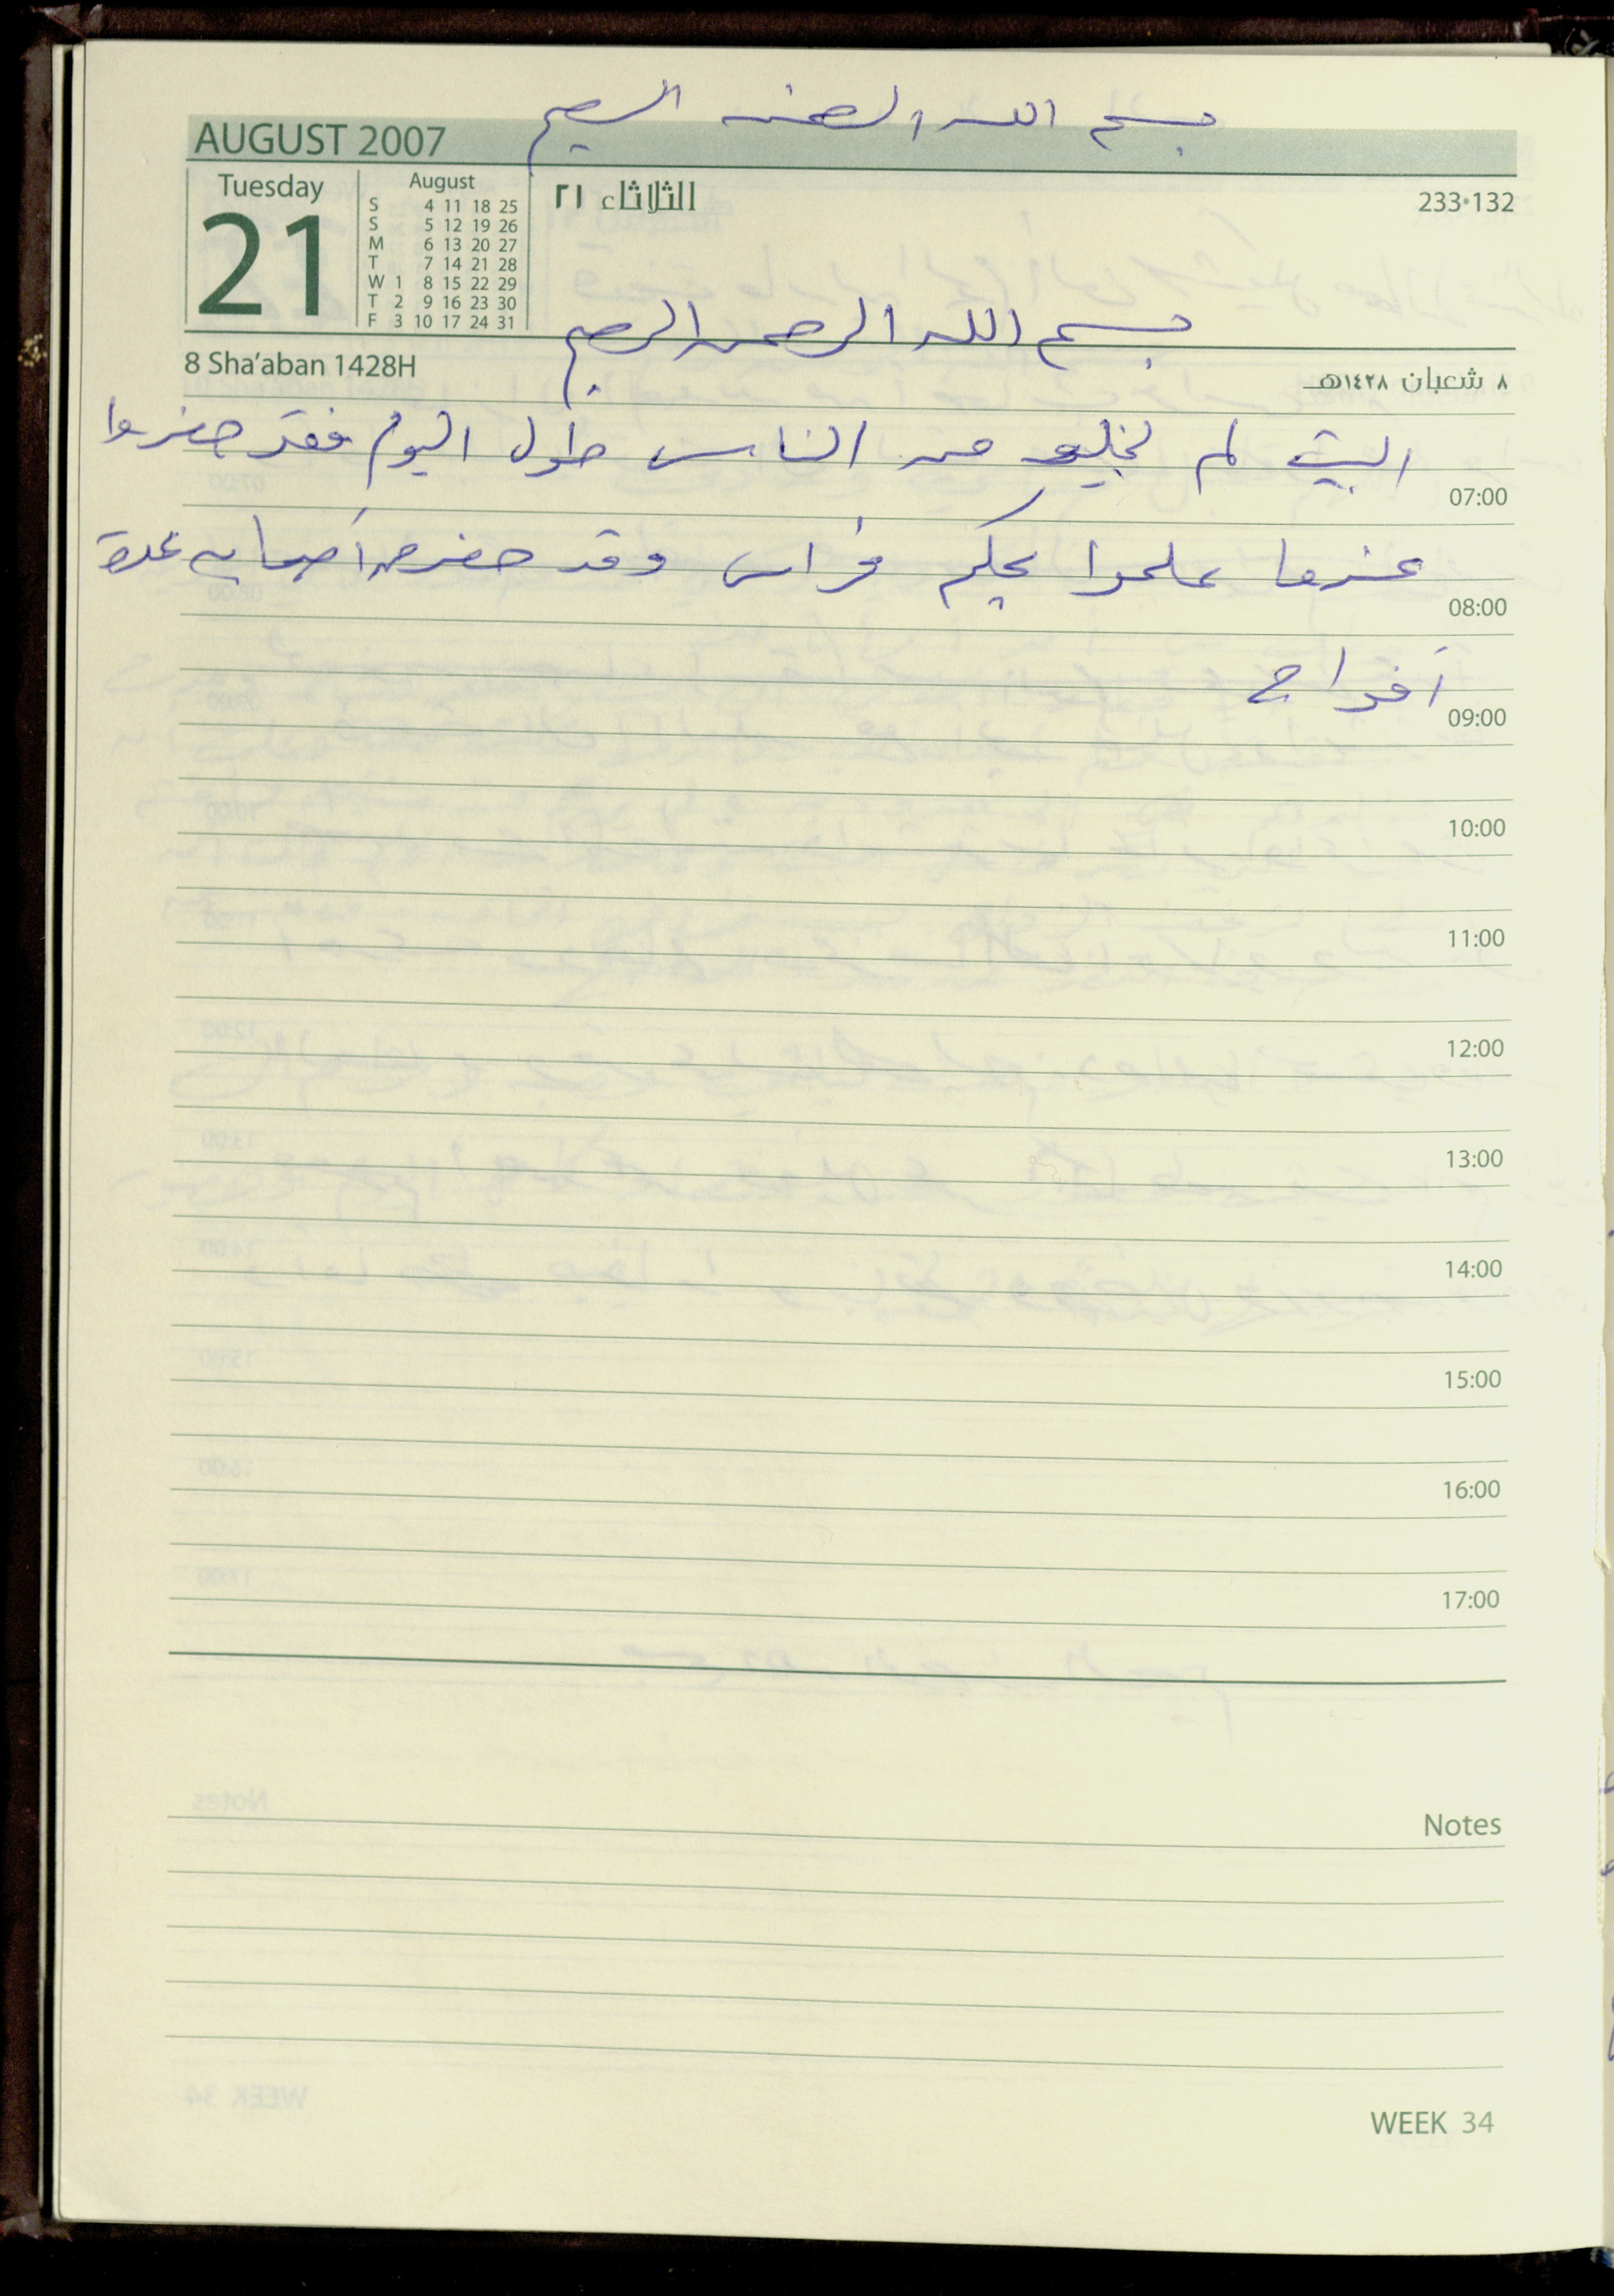 بسم الله الرحمن الرحيم
AUGUST 2007
Tuesday
21
August
S 4 11 18 25
S 5 12 19 26
M 6 13 20 27
T 7 14 21 28
W 1 8 15 22 29
T 2 9 16 23 30
F 3 10 17 24 31
الثلاثاء ٢١
233•132
بسم الله الرحمن الرحيم
8 Sha'aban 1428H
٨ شعبان ١٤٢٨هـ
البيت لم يخلو من الناس طول اليوم فقد حضروا
07:00
عندما علموا بحكم فراس وقد حضر أصحابه عدة
08:00
أفواج
09:00
10:00
11:00
12:00
13:00
14:00
15:00
16:00
17:00
Notes
WEEK 34